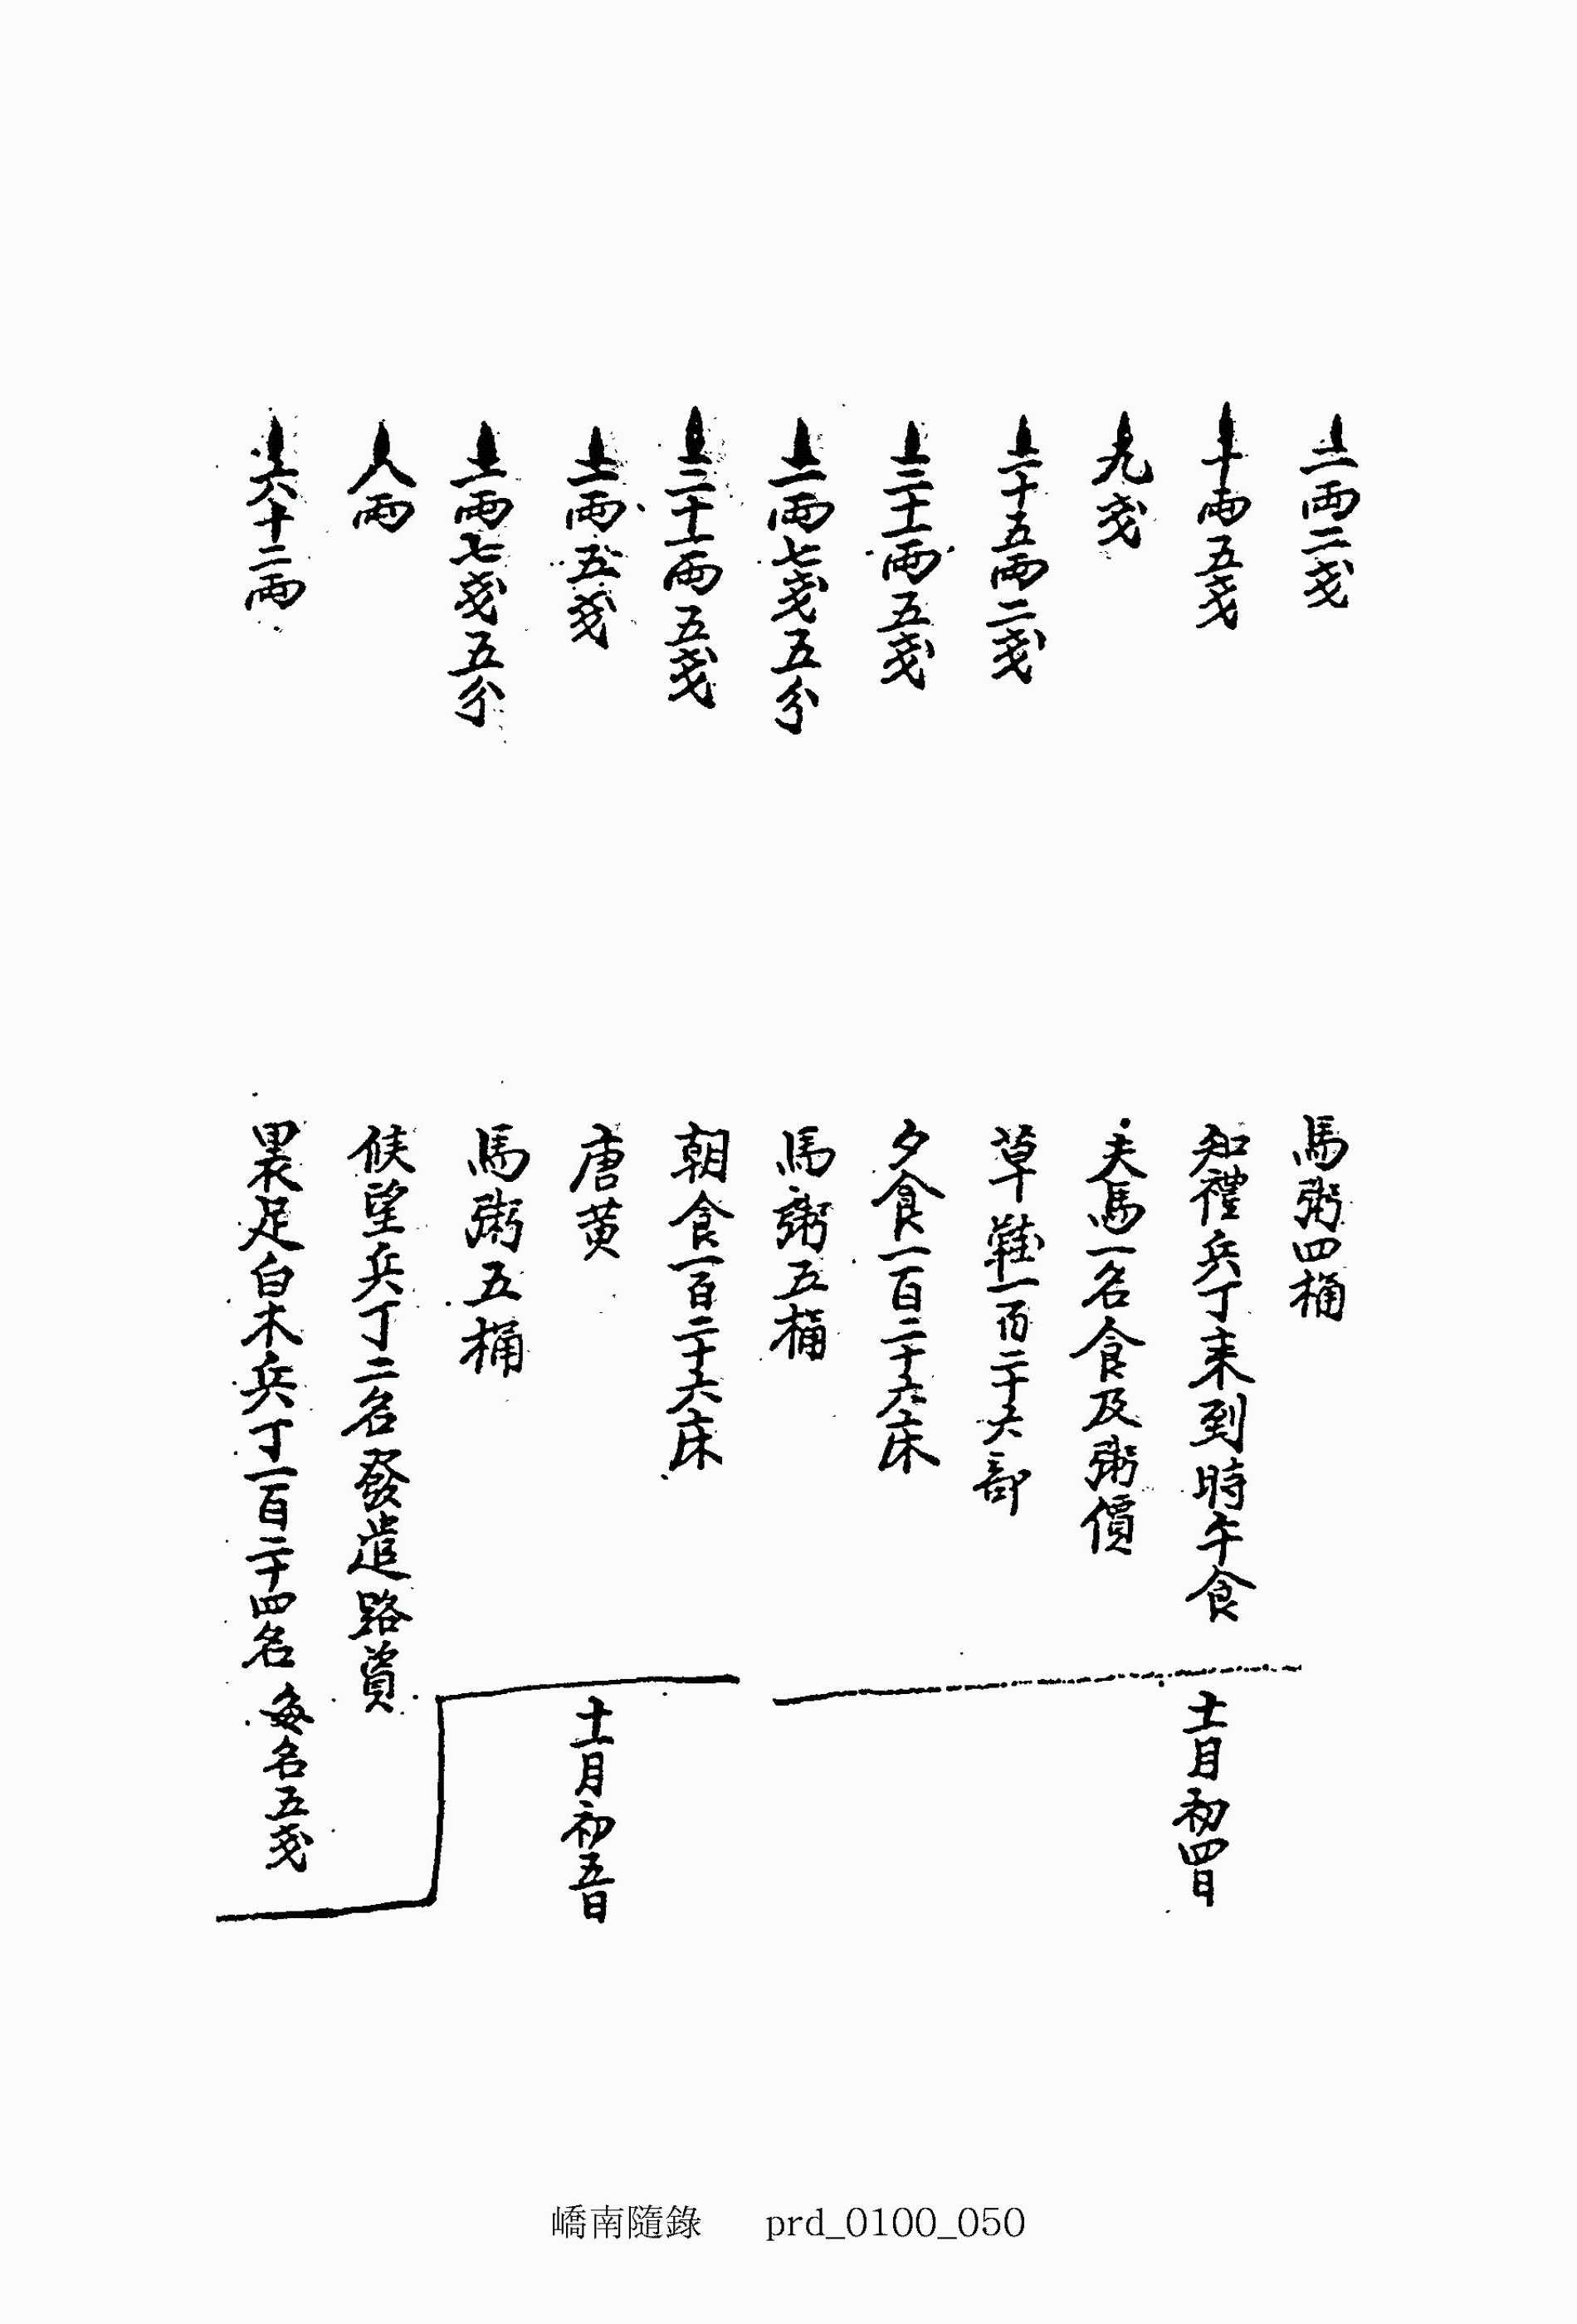 二兩二戔 馬粥四桶
十兩五戔 知禮兵丁來到時午食
十一月初四日
九戔 夫馬一名食及粥價
二十五兩二戔 草鞋一百二十六部
三十一兩五戔 夕食一百二十六床
二兩七戔五分 馬粥五桶
三十一兩五戔 朝食一百二十六床
一兩五戔 唐黃
十一月初五日
二兩七戔五分 馬粥五桶
八兩 候望兵丁二名發遣路資
六十二兩 裹足白木兵丁一百二十四名 每名五戔
嶠南隨錄 prd_0100_050